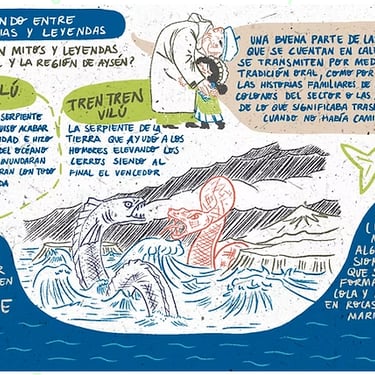 NDO ENTRE
IAS Y LEYENDAS
N MITOS Y LEYENDAS
Y LA REGIÓN DE AYSÉN?
UNA BUENA PARTE DE LA
QUE SE CUENTAN EN CAL
SE TRANSMITEN POR MED
TRADICIÓN ORAL, COMO POR
LAS HISTORIAS FAMILIARES DE
COLONOS DEL SECTOR O LAS
DE LO QUE SIGNIFICABA TRAS
CUANDO NO HABÍA CAMI
LÚ
SERPIENTE
UISO ACABAR
IDAD E HIZO
DEL OCÉANO
INUNDARAN
RAN CON TODO
DA
TRENTREN
VILÚ
LA SERPIENTE DE LA
TIERRA QUE AYUDÓ A LOS
HOMBRES ELEVANDO LOS
CERROS SIENDO AL
FINAL EL VENCEDOR.
R
EN
E
ALG
SION
QUE S
FORMA
COLA Y
EN ROCAS
MARI